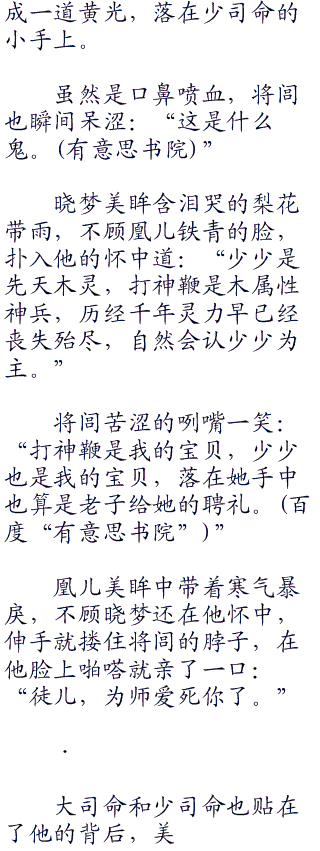 成一道黄光，落在少司命的
小手上。
虽然是口鼻喷血，将闾
也瞬间呆涩：“这是什么
鬼。(有意思书院)”
晓梦美眸含泪哭的梨花
带雨，不顾凰儿铁青的脸，
扑入他的怀中道：“少少是
先天木灵，打神鞭是木属性
神兵，历经千年灵力早已经
丧失殆尽，自然会认少少为
主。”
将闾苦涩的咧嘴一笑：
“打神鞭是我的宝贝，少少
也是我的宝贝，落在她手中
也算是老子给她的聘礼。(百
度“有意思书院”)”
凰儿美眸中带着寒气暴
戾，不顾晓梦还在他怀中，
伸手就搂住将闾的脖子，在
他脸上啪嗒就亲了一口：
“徒儿，为师爱死你了。”
.
大司命和少司命也贴在
了他的背后，美